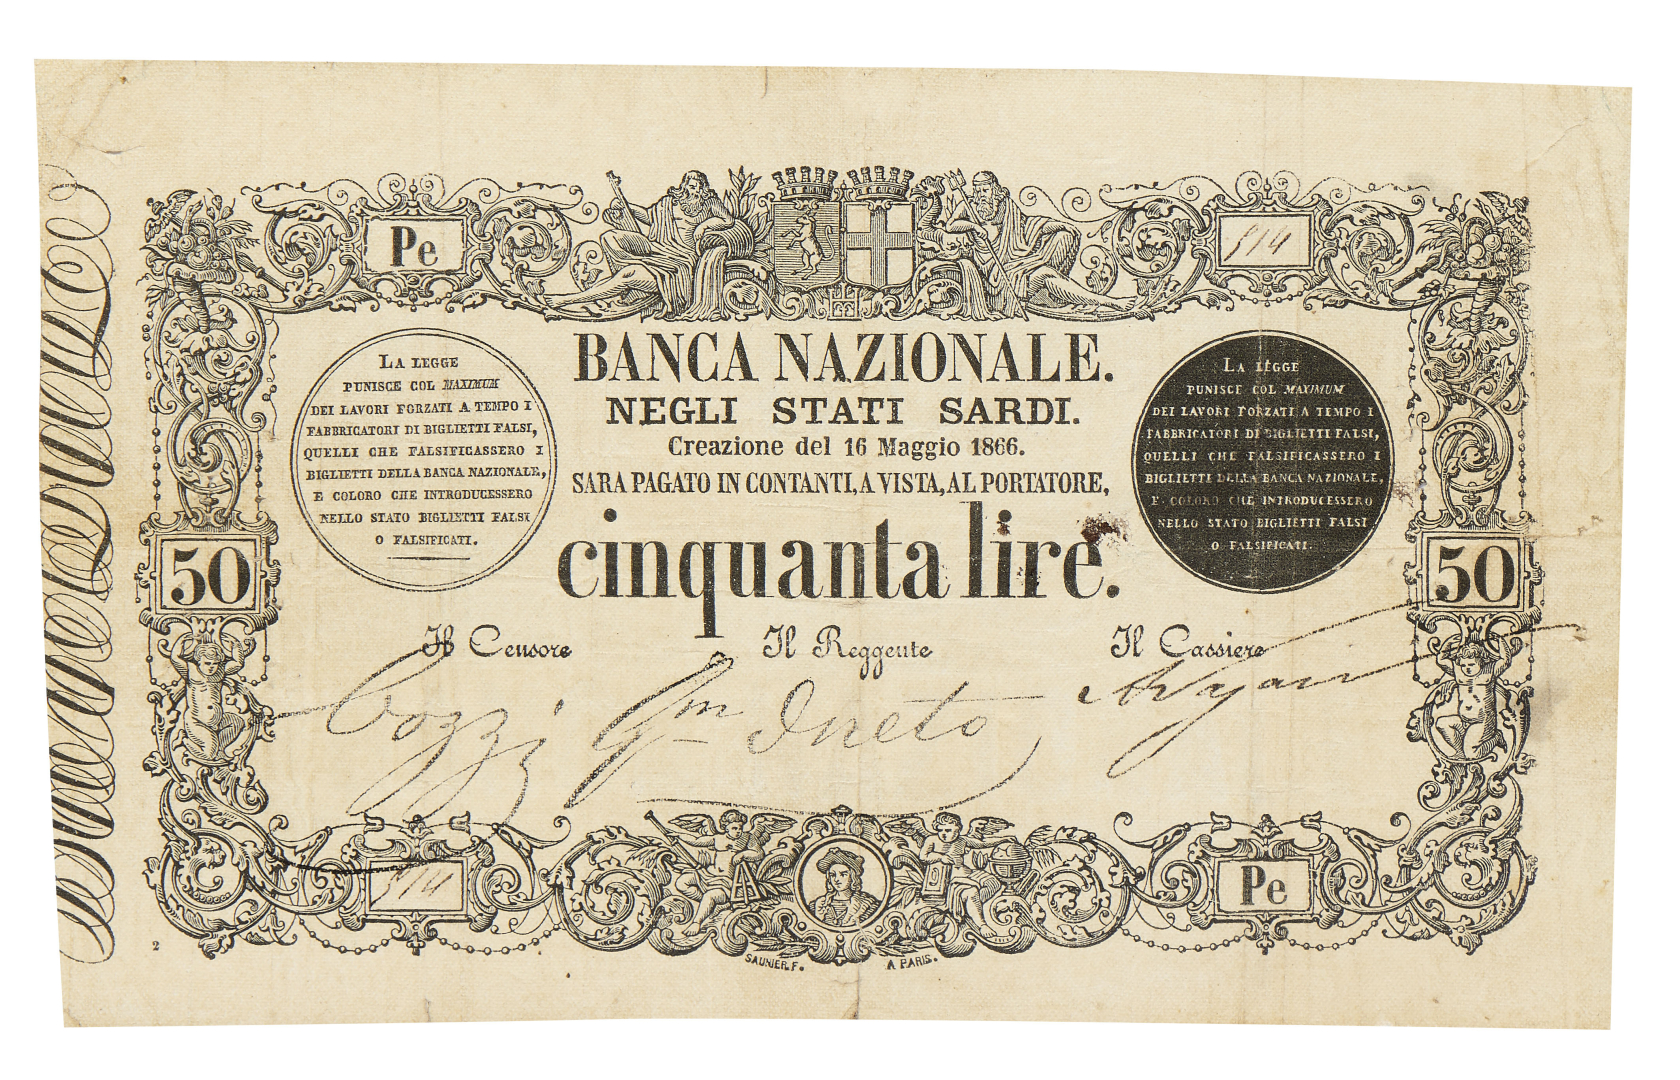 Pe
514
BANCA NAZIONALE.
NEGLI STATI SARDI.
Creazione del 16 Maggio 1866.
SARA PAGATO IN CONTANTI, A VISTA, AL PORTATORE,
cinquanta lire.
LA LEGGE
PUNISCE COL MAXIMUM
DEI LAVORI FORZATI A TEMPO I
FABBRICATORI DI BIGLIETTI FALSI,
QUELLI CHE FALSIFICASSERO I
BIGLIETTI DELLA BANCA NAZIONALE,
E COLORO CHE INTRODUCESSERO
NELLO STATO BIGLIETTI FALSI
O FALSIFICATI.
LA LEGGE
PUNISCE COL MAXIMUM
DEI LAVORI FORZATI A TEMPO I
FABBRICATORI DI BIGLIETTI FALSI,
QUELLI CHE FALSIFICASSERO I
BIGLIETTI DELLA BANCA NAZIONALE,
E COLORO CHE INTRODUCESSERO
NELLO STATO BIGLIETTI FALSI
O FALSIFICATI.
50
50
Il Censore Il Reggente Il Cassiere
Cozzi
514
Pe
2
SAUNIER. F. A PARIS.